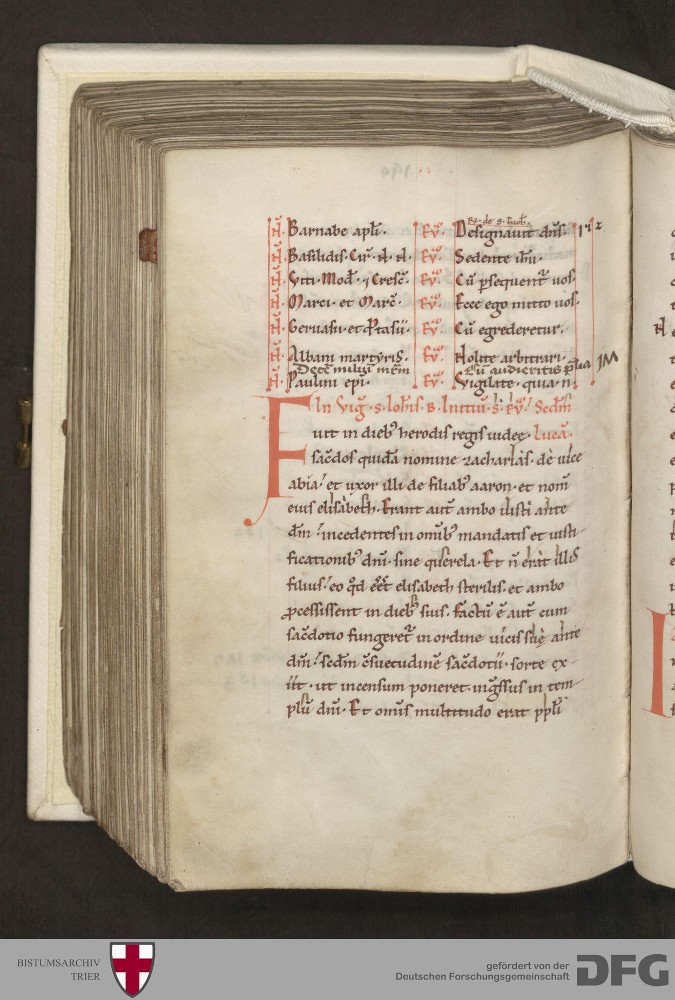 Re. de s. Luc̄
H̄. Barnabe apłi. Ev̄. Designauit dn̄s. 112
H̄. Basilidis. Cir̄. N. N. Ev̄. Sedente ih̄u.
H̄. Viti. Mod̄. ⁊ Cresc̄. Ev̄. Cū ꝑsequent̄ uos.
H̄. Marci. et Marc̄. Ev̄. Ecce ego mitto uos.
H̄. Geruasii. et ꝓtasii. Ev̄. Cū egrederetur.
H̄. Albani martyris. Ev̄. Nolite arbitrari.
Decē miliū mr̄m Cū audieritis p̄lia IM
H̄. Paulini epi. Ev̄. Vigilate. quia n̄
In Viḡ. s. Ioh̄is. B. Initiū. s. Ev̄. Secdm̄
Fuit in dieb᷒ herodis regis iudee. Lucā.
sac̄dos quidā nomine zacharias. de uice
abia. et uxor illi de filiab᷒ aaron. et nom̄
eius elisabeth. Erant aut̄ ambo iusti ante
dm̄. incedentes in omīb᷒ mandatis et iusti-
ficationib᷒ dn̄i. sine querela. Et n̄ erat illis
filius. eo qd̄ eēt elisabeth sterilis. et ambo
ꝓcessissent in dieb᷒ suis. Factū ē aut̄ cum
sac̄dotio fungeret̄ in ordine uicis sue ante
dm̄. secdm̄ c̄suetudinē sac̄dotii. sorte ex-
iit. ut incensum poneret. ingssus in tem-
plū dn̄i. Et omīs multitudo erat ppłi
BISTUMSARCHIV
TRIER
gefördert von der
Deutschen Forschungsgemeinschaft
DFG